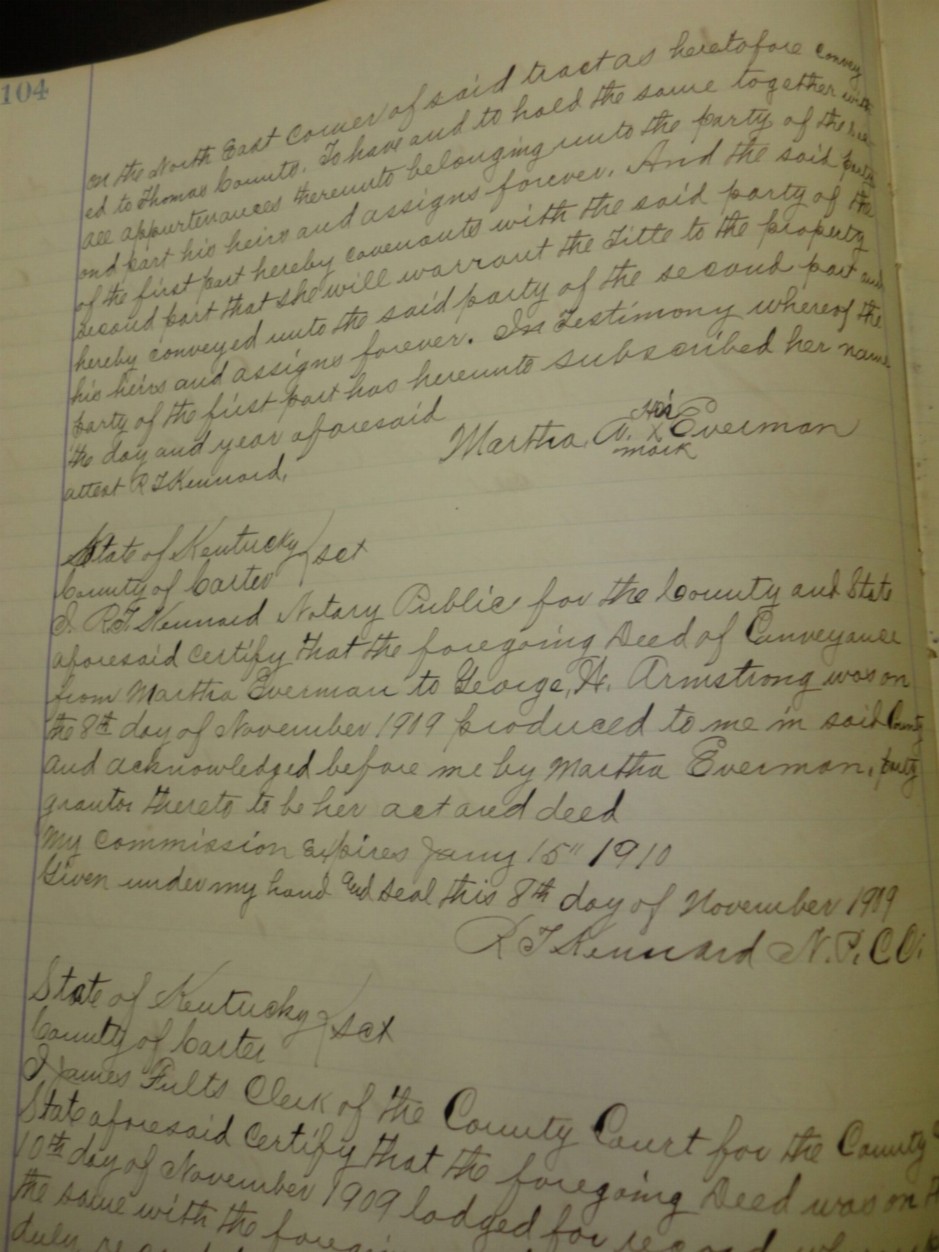 104
on the North East Corner of said tract as heretofore convey
ed to Thomas Counts. To have and to hold the same together with
all appurtenances thereunto belonging unto the party of the sec-
ond part his heirs and assigns forever. And the said party
of the first part hereby covenants with the said party of the
second part that she will warrant the Title to the property
hereby conveyed unto the said party of the second part and
his heirs and assigns forever. In Testimony whereof the
party of the first part has hereunto subscribed her name
the day and year aforesaid
attest R T Kennard,
His
Martha A. X Everman
mark
State of Kentucky } sct
County of Carter
I. R T Kennard Notary Public for the County and State
aforesaid certify that the foregoing Deed of Conveyance
from Martha Everman to George, N. Armstrong was on
the 8th day of November 1909 produced to me in said County
and acknowledged before me by Martha Everman, party
grantor thereto to be her act and deed
My commission Expires Jany 15" 1910
Given under my hand and seal this 8th day of November 1909
R T Kennard N. P. C Co.
State of Kentucky } sct
County of Carter
I James Fults Clerk of the County Court for the County
State aforesaid Certify that the foregoing Deed was on
10th day of November 1909 lodged for record
the same with the foregoing
duly